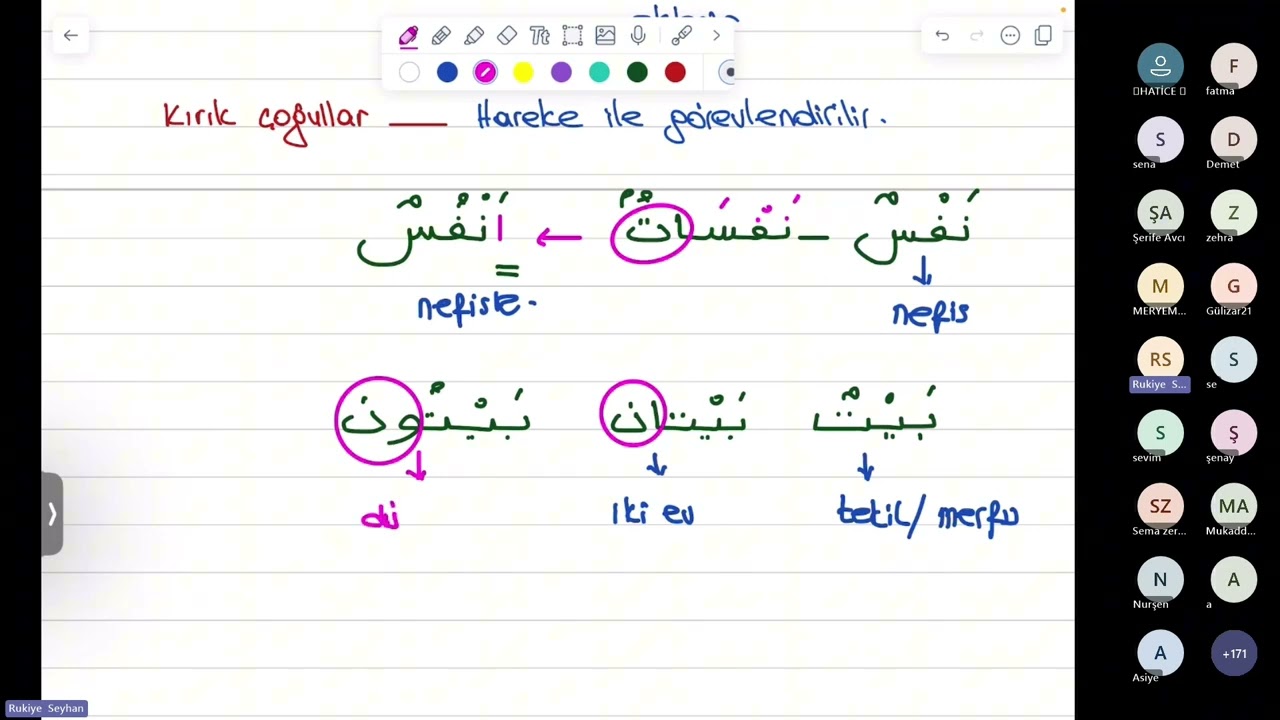 Kırık çoğullar — Hareke ile görevlendirilir.
نَفْسٌ – نَفْسَاتٌ ← اَنْفُسٌ
nefis
nefisle
بَيْتٌ بَيْتَان بَيْتُون
tekil/ merfu
iki ev
dü
HATİCE
fatma
sena
Demet
Şerife Avcı
zehra
MERYEM...
Gülizar21
Rukiye S...
se
sevim
şenay
Sema zer...
Mukadd...
Nurşen
a
Asiye
F
S
D
ŞA
Z
M
G
RS
S
S
Ş
SZ
MA
N
A
A
+171
Tt
Rukiye Seyhan